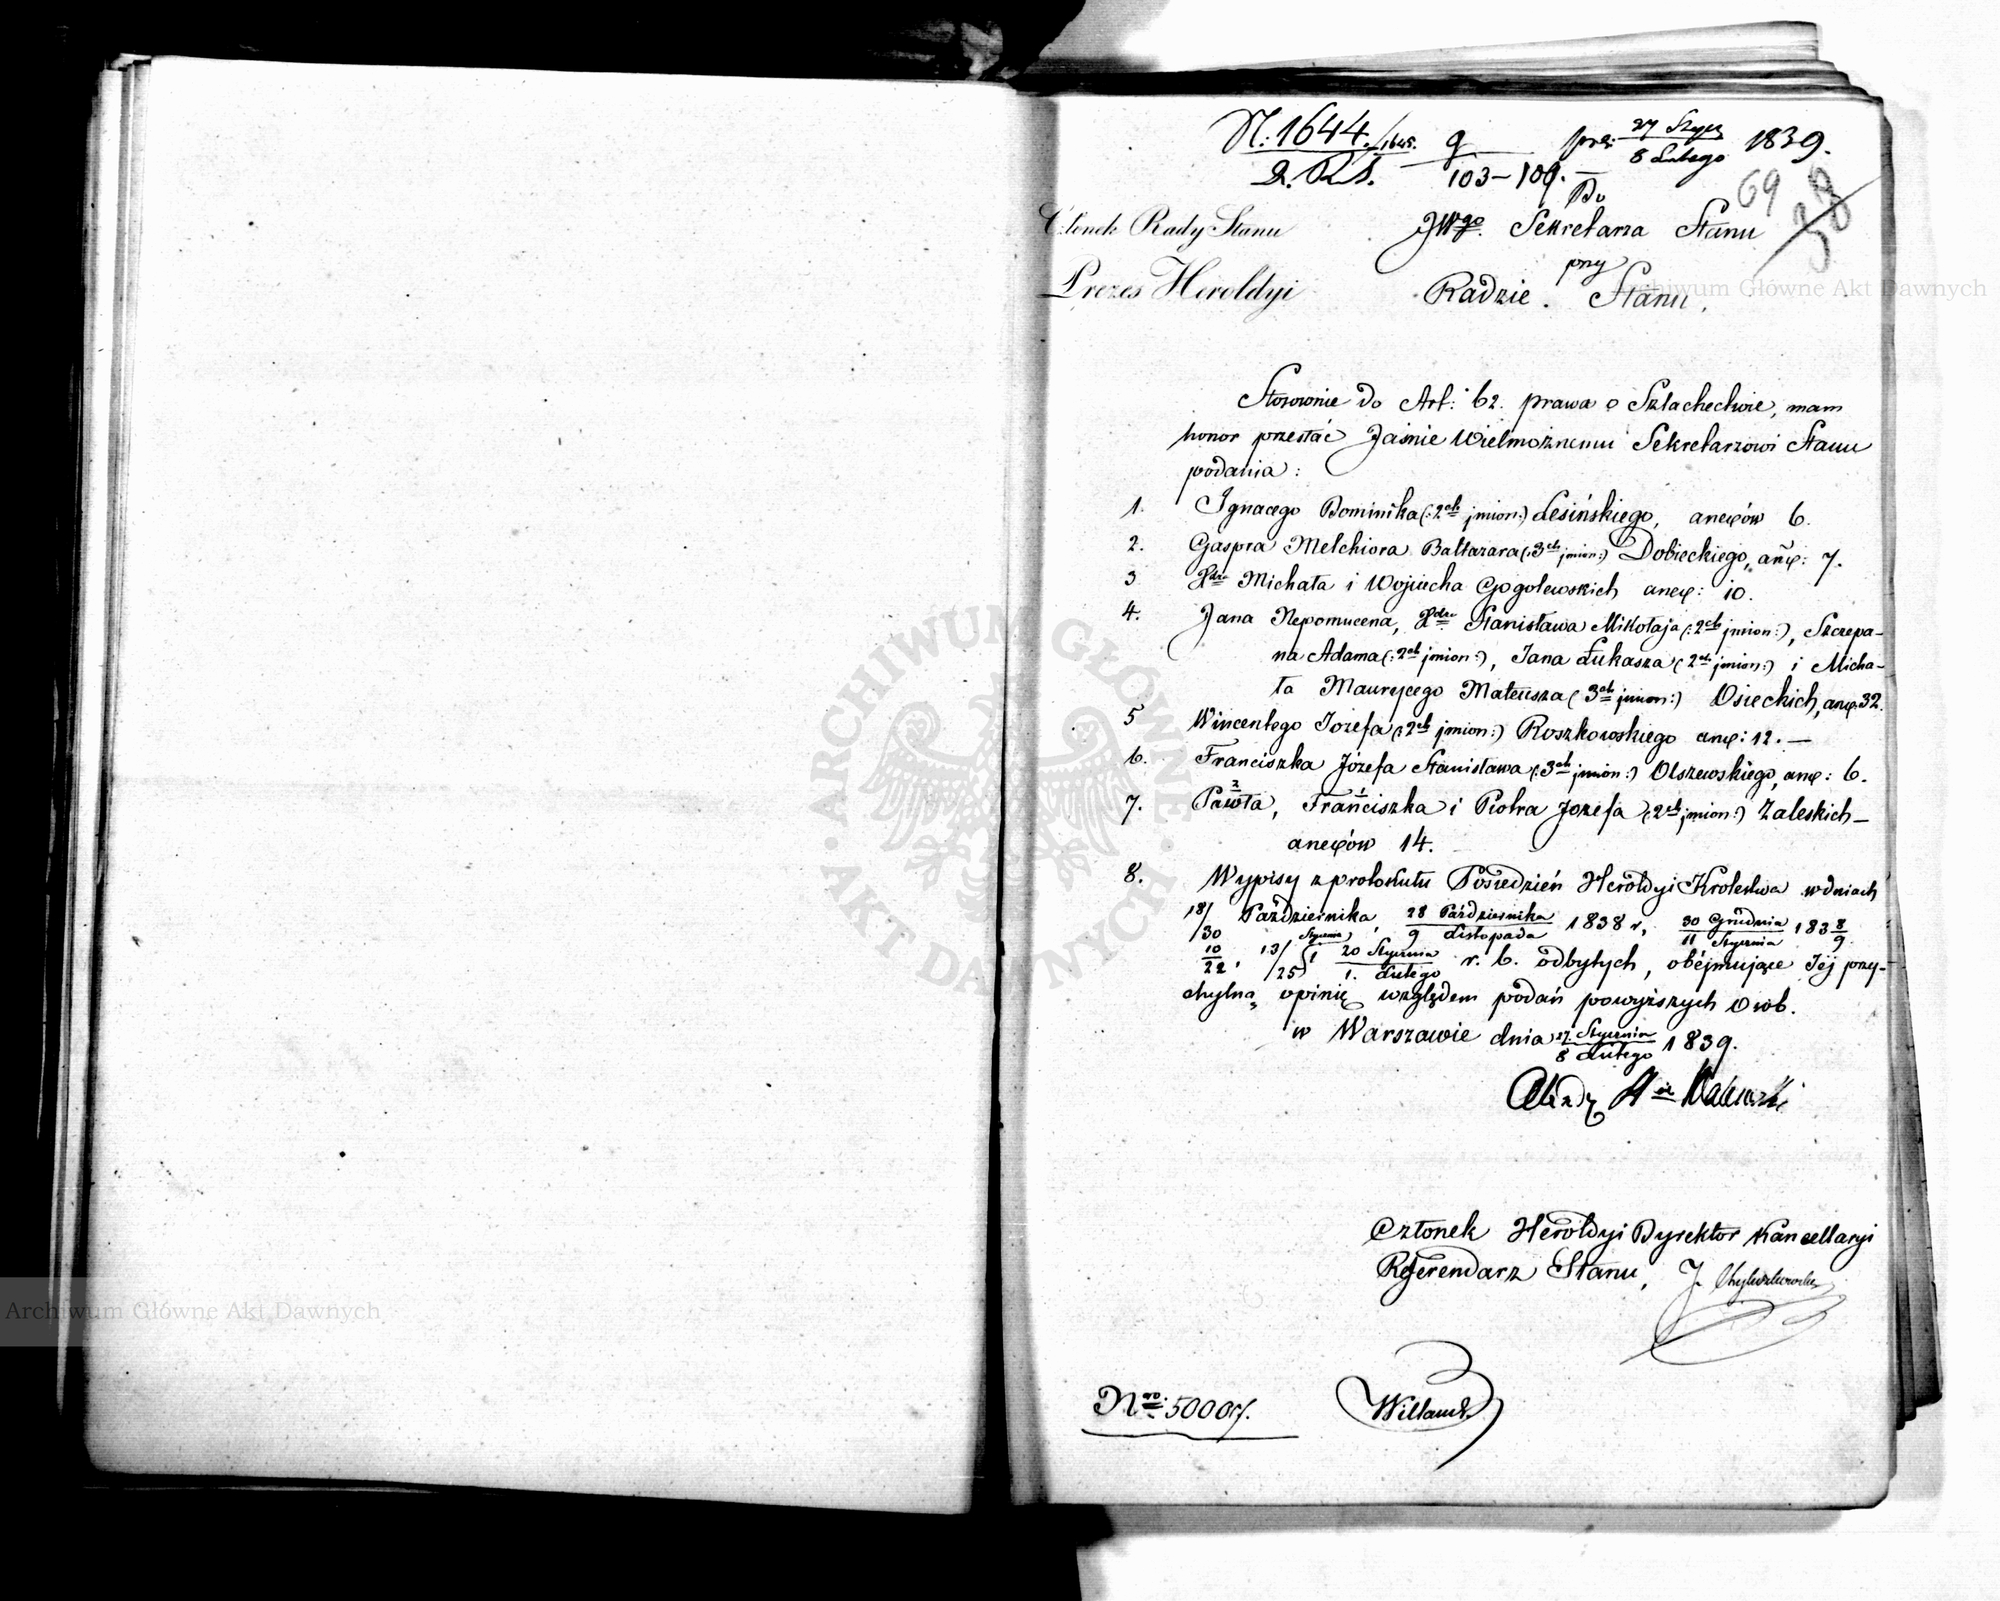 N. 1644./1645. 9 prez: 27 Stycz 1839.
D. R. S. 103–109. 8 Lutego
69
Do
Członek Rady Stanu JWgo. Sekretarza Stanu
przy
Prezes Heroldyi Radzie Stanu.
Stosownie do Art: 62. prawa o Szlachectwie, mam
honor przesłać Jaśnie Wielmożnemu Sekretarzowi Stanu
podania:
1. Ignacego Dominika (:2ch jmion:) Lesińskiego, anexów 6.
2. Gaspra Melchiora Baltazara (:3ch jmion:) Dobieckiego, anex: 7.
3 Michała i Wojciecha Gogolewskich anex: 10.
4. Jana Nepomucena, Stanisława Mikołaja (:2ch jmion:), Szczepa-
na Adama (:2ch jmion:), Jana Łukasza (2ch jmion:) i Micha-
ła Maurycego Mateusza (3ch jmion:) Osieckich, anex. 32.
5 Wincentego Jozefa (:2ch jmion:) Roszkowskiego anex: 12. —
6. Franciszka Józefa Stanisława (:3ch jmion:) Olszewskiego, anex: 6.
7. Pawła, Franciszka i Piotra Jozefa (:2ch jmion:) Zaleskich—
anexów 14.
8. Wypisy z protokułu Posiedzień Heroldyi Krolestwa w dniach
18/30 Października, 28 Października/9 Listopada 1838 r, 30 Grudnia/11 Stycznia 1838/9
10/22, 13/25 Stycznia i 20 Stycznia/1. Lutego r. b. odbytych, obéjmujące Jéj przy-
chylną opinię względem podań powyższych Osób.
w Warszawie dnia 27. Stycznia/8 Lutego 1839.
Członek Heroldyi Dyrektor Kancellaryi
Referendarz Stanu,
Nro: 5000
Archiwum Główne Akt Dawnych
Archiwum Główne Akt Dawnych
· ARCHIWUM GŁÓWNE · AKT DAWNYCH